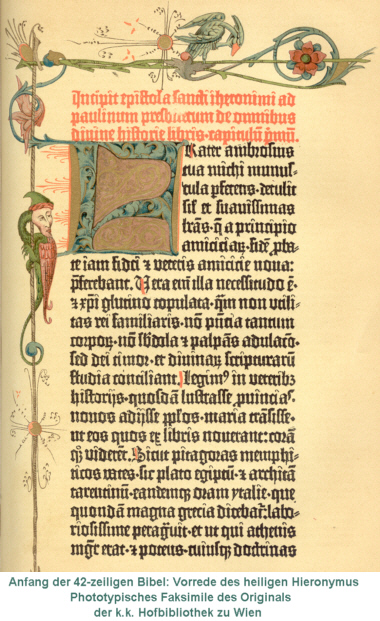 Incipit epistola sancti iheronimi ad
paulinum presbiterum de omnibus
divine historie libris·capitulū pmū.
Frater ambrosius
tua michi munus-
cula ꝑferens·detulit
sił et suavissimas
lrās·q̄ a principio
amiciciaꝝ·fidē ꝓba-
te iam fidei ⁊ veteris amicicie nova:
ꝑferebant. Vera enī illa necessitudo ē·
⁊ xpī glutino copulata·qm̄ non utili-
tas rei familiaris·nō pn̄cia tantum
corpoꝝ·nō sbdola ⁊ palpās adulacō·
sed dei timor·et divinaꝝ scripturarū
studia conciliant. Legimꝰ in veteribꝫ
historijs·quosdā lustrasse ꝓuincias·
nouos adijsse pplos·maria trāsisse·
ut eos quos ex libris noverant: corā
qꝫ viderēt. Sicut pitagoras memphi-
ticos vates·sic plato egiptū·⁊ architā
tarentinū·eandemqꝫ oram ytalie·que
quondā magna grecia dicebat̄: labo-
riosissime peragūit·et ut qui athenis
mgr̄ erat·⁊ potens·cuiusqꝫ doctrinas
Anfang der 42-zeiligen Bibel: Vorrede des heiligen Hieronymus
Phototypisches Faksimile des Originals
der k.k. Hofbibliothek zu Wien